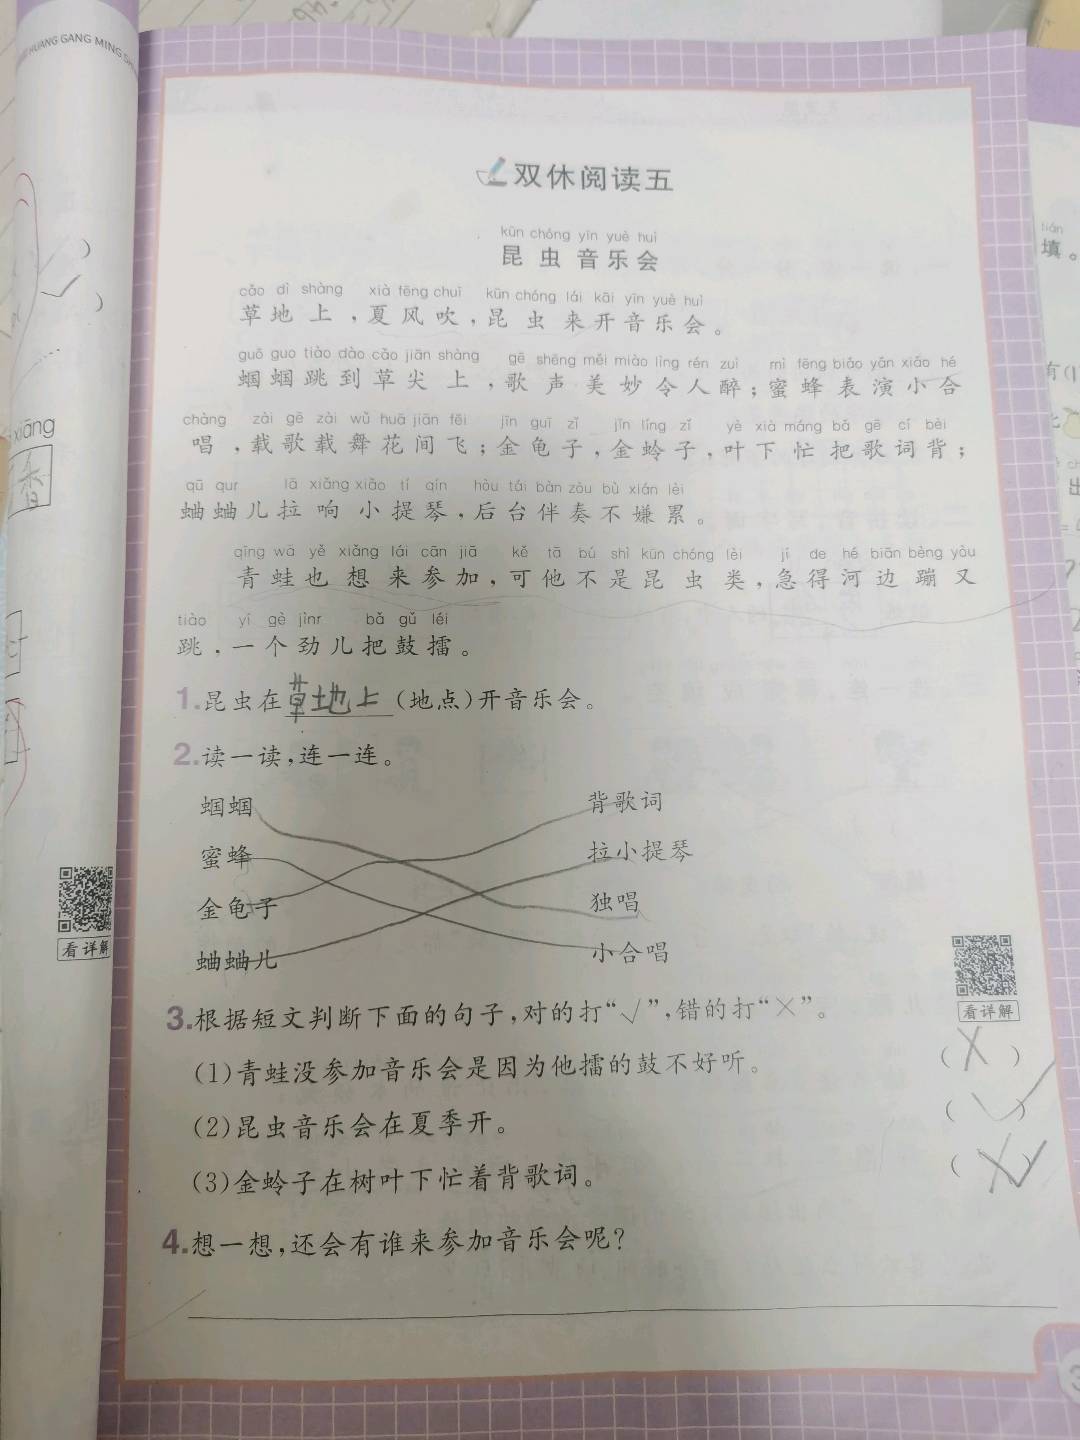 HUANG GANG MING
xiāng
香
看详解
双休阅读五
kūn chóng yīn yuè huì
昆虫音乐会
cǎo dì shàng xià fēng chuī kūn chóng lái kāi yīn yuè huì
草地上,夏风吹,昆虫来开音乐会。
guō guo tiào dào cǎo jiān shàng gē shēng měi miào lìng rén zuì mì fēng biǎo yǎn xiǎo hé
蝈蝈跳到草尖上,歌声美妙令人醉;蜜蜂表演小合
chàng zài gē zài wǔ huā jiān fēi jīn guī zǐ jīn líng zǐ yè xià máng bǎ gē cí bèi
唱,载歌载舞花间飞;金龟子,金蛉子,叶下忙把歌词背;
qū qur lā xiǎng xiǎo tí qín hòu tái bàn zòu bù xián lèi
蛐蛐儿拉响小提琴,后台伴奏不嫌累。
qīng wā yě xiǎng lái cān jiā kě tā bú shì kūn chóng lèi jí de hé biān bèng yòu
青蛙也想来参加,可他不是昆虫类,急得河边蹦又
tiào yí gè jìnr bǎ gǔ léi
跳,一个劲儿把鼓擂。
1.昆虫在草地上(地点)开音乐会。
2.读一读,连一连。
蝈蝈 背歌词
蜜蜂 拉小提琴
金龟子 独唱
蛐蛐儿 小合唱
3.根据短文判断下面的句子,对的打“√”,错的打“×”。
看详解
(1)青蛙没参加音乐会是因为他擂的鼓不好听。 (×)
(2)昆虫音乐会在夏季开。 (√)
(3)金蛉子在树叶下忙着背歌词。 (×)
4.想一想,还会有谁来参加音乐会呢?
tián
填。